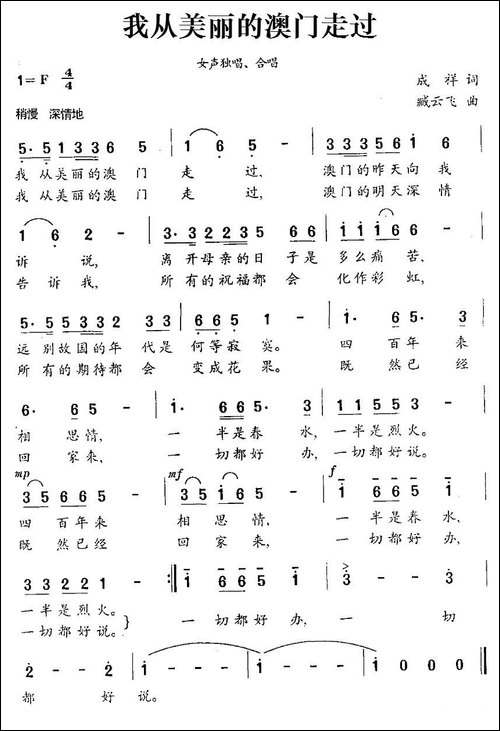 我从美丽的澳门走过
女声独唱、合唱
1=F 4/4
成祥 词
臧云飞 曲
稍慢 深情地
5· 5 1 3 3 6 5 | 1 6 5 - | 3·3 3 3 5 6 5 |
我 从美丽的澳 门 走 过, 澳门的昨天向 我
我 从美丽的澳 门 走 过, 澳门的明天深 情
1 6 2 - | 3· 3 2 2 3 5 6 6 | i i i i 6 6 - |
诉 说, 离 开母亲的日 子是 多么痛 苦、
告 诉 我, 所 有的祝福都 会 化作彩 虹,
5· 5 3 5 3 3 2 3 3 | 1 6 6 5 5 - | 1· 6 5· 3 |
远 别故国的年 代是 何等寂 寞。 四 百年 来
所 有的期待都 会 变成花 果。 既 然已 经
6· 6 5 - | i· 6 6 5· 3 | 1 1 5 5 3 - |
相 思情, 一 半是春 水, 一半是烈火。
回 家来, 一 切都好 办,一切都好说。
mp mf f
3 5 6 6 5 - | 3 5 i 6 5 - | i 6 6 5 i |
四 百年来 相 思情, 一 半是春水,
既 然已经 回 家来, 一 切都好办,
3 3 2 2 1 - :‖ i 6 6 5 i | 3 - - 3 |
一半是烈火。
一切都好说。} 一切都好 办, 一 切
2 - 2 - | i - - - | i - - - | i 0 0 0 ‖
都 好 说。